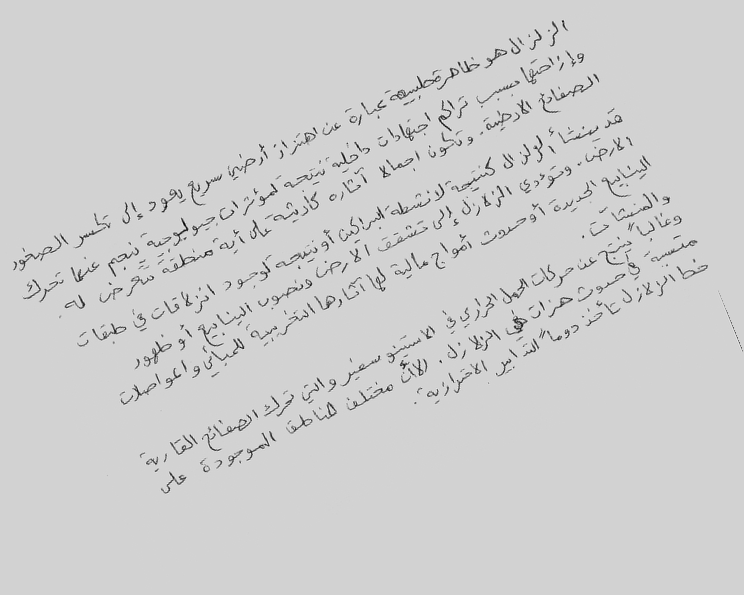 الزلزال هو ظاهرة طبيعية عبارة عن اهتزاز أرضي سريع يعود إلى تكسر الصخور
وإزاحتها بسبب تراكم اجتهادات داخلية نتيجة لمؤثرات جيولوجية ينجم عنها تحرك
الصفائح الأرضية. وتكون اجمالا آثاره كارثية على أية منطقة تتعرض له.
قد ينشأ الزلزال كنتيجة لأنشطة البراكين أو نتيجة لوجود انزلاقات في طبقات
الأرض. وتؤدي الزلازل إلى تشقق الأرض ونضوب الينابيع أو ظهور
الينابيع الجديدة أو حدوث أمواج عالية لها آثارها التخريبية للمباني والمواصلات
والمنشآت.
وغالباً ينتج عن حركات الحمل الحراري في الاستنوسفير والتي تحرك الصفائح القارية
متسببة في حدوث هزات هي الزلازل. الآن مختلف المناطق الموجودة على
خط الزلازل تأخذ دوماً التدابير الاحترازية.